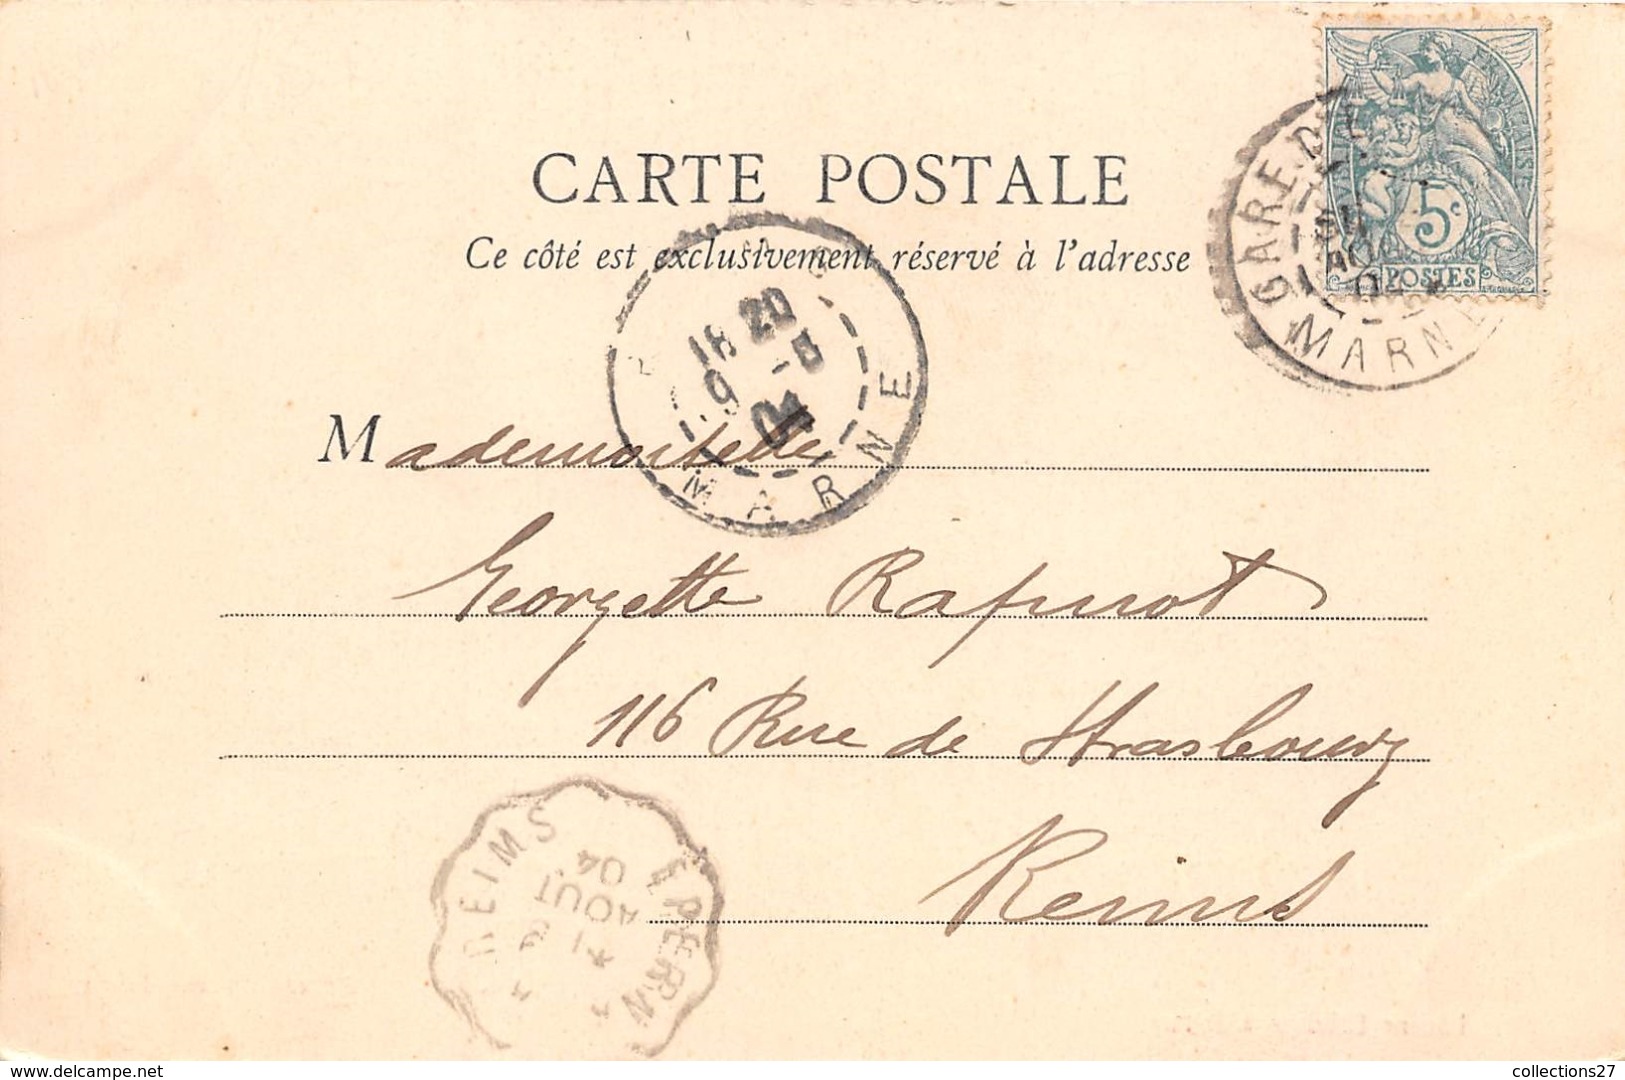 CARTE POSTALE
Ce côté est exclusivement réservé à l'adresse
RÉPUBLIQUE FRANÇAISE
5c
POSTES
GARE D
MARNE
18 20
9 -8
04
MARNE
Mademoiselle
Georgette
116 Rue de Strasbourg
Reims
REIMS
EPERN
AOUT
04
collections27